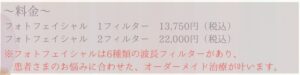 ～料金～
フォトフェイシャル　1フィルター　13,750円（税込）
フォトフェイシャル　2フィルター　22,000円（税込）
※フォトフェイシャルは6種類の波長フィルターがあり、
患者さまのお悩みに合わせた、オーダーメイド治療が叶います。